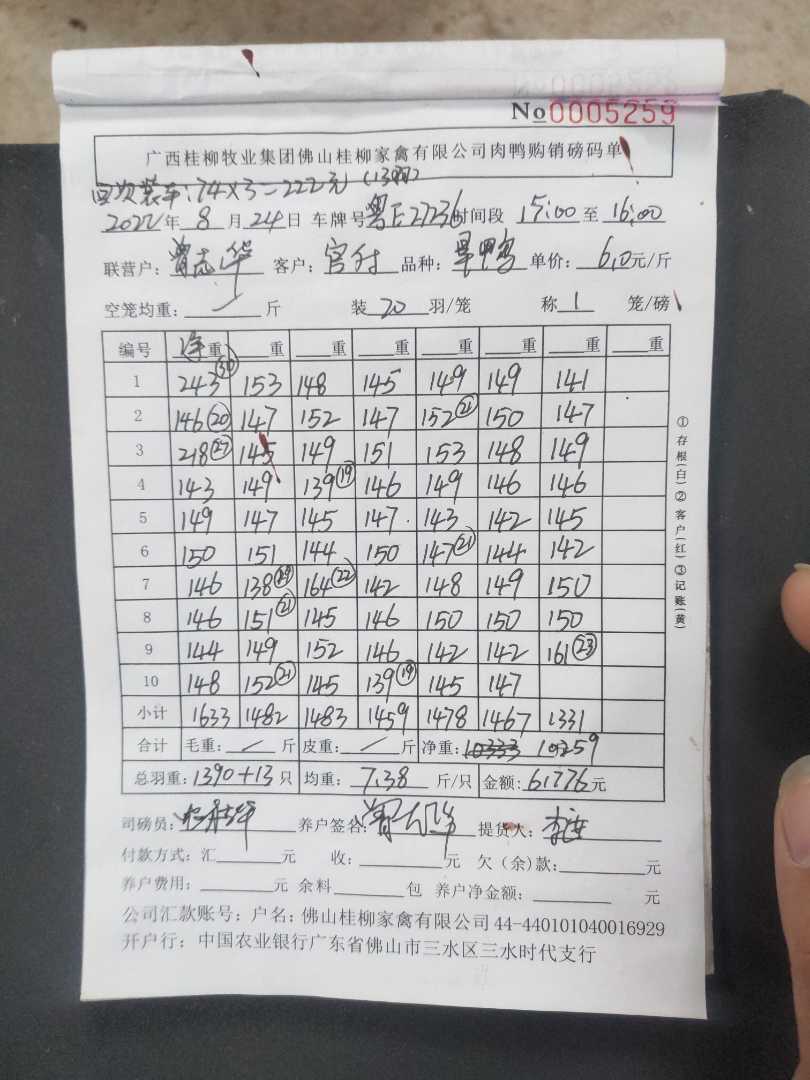 No 0005259
广西桂柳牧业集团佛山桂柳家禽有限公司肉鸭购销磅码单
四次装车:74×3=222元
2022年 8 月 24 日 车牌号 粤E27236 时间段 15:00 至 16:00
联营户: 曾志华 客户: 品种: 旱鸭 单价: 6.0元/斤
空笼均重: 斤 装 20 羽/笼 称 1 笼/磅
编号 净重 重 重 重 重 重 重 重
1 243 (30) 153 148 145 149 149 141
2 146 (20) 147 152 147 152 (21) 150 147
3 218 (27) 145 149 151 153 148 149
4 143 149 139 (19) 146 149 146 146
5 149 147 145 147 143 142 145
6 150 151 144 150 147 (21) 144 142
7 146 138 (19) 164 (22) 142 148 149 150
8 146 151 (21) 145 146 150 150 150
9 144 149 152 146 142 142 161 (23)
10 148 152 (21) 145 139 (19) 145 147
小计 1633 1482 1483 1459 1478 1467 1331
合计 毛重: / 斤 皮重: / 斤 净重: 10333 10259
总羽重: 1390+13 只 均重: 7.38 斤/只 金额: 61776 元
司磅员: 养户签名: 提货人:
付款方式: 汇 元 收: 元 欠(余)款: 元
养户费用: 元 余料 包 养户净金额: 元
公司汇款账号: 户名: 佛山桂柳家禽有限公司 44-440101040016929
开户行: 中国农业银行广东省佛山市三水区三水时代支行
①存根(白)②客户(红)③记账(黄)